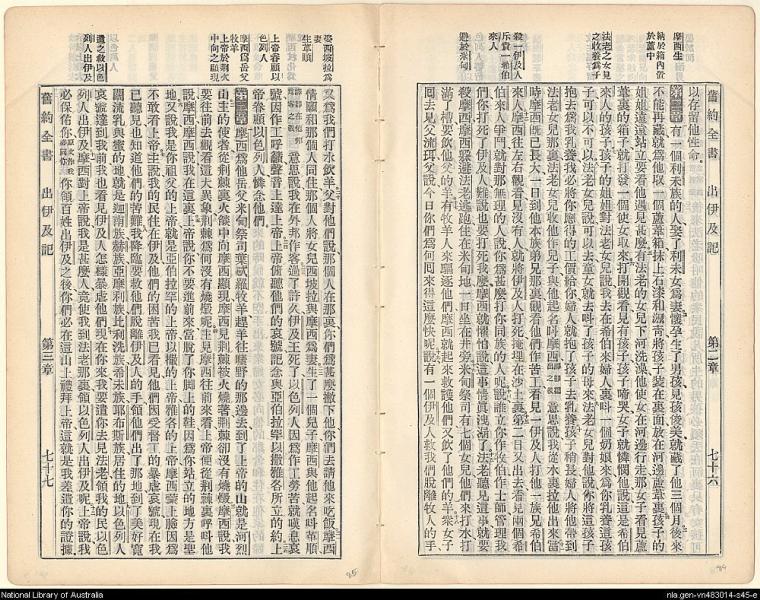 摩西生
納於箱內置
於蘆中
法老之女見
之收養爲子
殺一伊及人
斥責一希伯
來人
避於米甸
舊約全書 出伊及記 第二章 七十六
以存留他性命
第二章 有一個利未族的人娶了利未女爲妻懷孕生了男孩見孩俊美就藏了他三個月後來
不能再藏就爲他取一個蘆葦箱抹上石漆和瀝青將孩子裝在裏面放在河邊蘆葦裏孩子的
姐姐遠遠站立要看他遇見甚麽有法老的女兒下河洗澡他使女在河邊行走那女子看見蘆
葦裏的箱子就打發一個使女取來打開觀看見有孩子孩子啼哭女子就憐憫他說這是希伯
來人的孩子孩子的姐姐對法老女兒說我去在希伯來婦人裏叫一個奶娘來爲你乳養這孩
子可以不可以法老女兒說可以去童女就去叫了孩子的母來法老女兒對他說你將這孩子
抱去爲我乳養我必將你應得的工價給你婦人就抱了孩子去乳養孩子稍長婦人將他帶到
法老女兒那裏法老女兒收他作兒子與他起名呼摩西 意思說我從水裏拉他出來當
時摩西旣已長大一日到他本族弟兄那裏觀看他們作苦工看見一伊及人打他一族兄希伯
來人摩西往左右觀看見沒有人就將伊及人打死掩埋在沙土裏第二日又出去看見兩個希
伯來人爭鬥就對那無理的人說你爲甚麽打你同族的人呢說誰立你作我們的士師管理我
們你打死了伊及人難道也要打死我麽摩西就懼怕說這事情眞洩漏了法老聽見這事就要
殺摩西摩西躱避法老逃跑住在米甸地一日坐在井旁米甸祭司有七個女兒他們來打水打
滿了槽要飲他父的羊有牧羊人來驅逐他們摩西就起來救護他們又飲了他們的羊衆女子
回去見父流珥父說今日你們爲何囘來得這麽快呢說有一個伊及人救我們脫離牧人的手
娶西坡拉爲
妻
生革順
上帝眷顧以
色列人
摩西爲岳父
牧羊
上帝於荆火
中向之顯現
遣之救以色
列人出伊及
又爲我們打水飲羊父對他們說那個人在那裏你們爲甚麽撇下他你們去請他來吃飯摩西
情願和那個人同住那個人將女兒西坡拉與摩西爲妻生了一個兒子摩西與他起名叫革順
意思說我在外邦作客過了許久伊及王死了以色列人因爲作工勞苦就嘆息哀
號因作工呼籲聲音上達上帝上帝俯聽他們的哀號記念與亞伯拉罕以撒雅各所立的約上
帝眷顧以色列人憐念他們
第三章 摩西爲他岳父米甸祭司葉忒羅牧羊趕羊往曠野的那邊去到了上帝的山就是河烈
山主的使者從荆棘裏火焰中向摩西顯現摩西見荆棘被火燒著荆棘卻沒有燒燬摩西說我
要往前去觀看這大異象荆棘爲何沒有燒燬呢主見摩西往前來看上帝從荆棘裏呼叫他
說摩西摩西說我在這裏上帝說你不要進前來當脫了你脚上的鞋因爲你站立的地方是聖
地又說我是你祖父的上帝就是亞伯拉罕的上帝以撒的上帝雅各的上帝摩西蒙上臉因爲
不敢看上帝主說我的民住在伊及他們的困苦我已看見他們因受督工的暴虐哀號現在我
已聽見也知道他們的苦難我降臨要救他們脫離伊及人的手領他們出了那地到了美好寬
闊流乳與蜜的地就是迦南族赫族亞摩利族比利洗族希未族耶布斯族居住的地以色列人
哀號達到我前我也看見伊及人怎樣暴虐他們現在你來我要遣你去見法老領我的民以色
列人出伊及摩西對上帝說我是甚麽人竟使我到法老那裏領以色列人出伊及呢上帝說我
必保佑你 你領百姓出伊及之後你們必在這山上禮拜上帝這就是我差遣你的證據
舊約全書 出伊及記 第三章 七十七
85
84
National Library of Australia
nla.gen-vn483014-s45-e